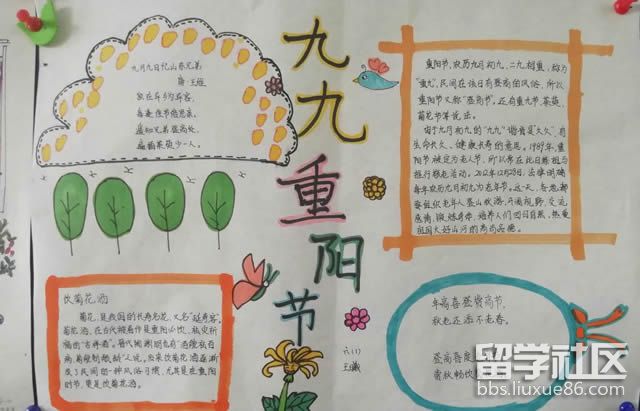 九九重阳节
九月九日忆山东兄弟
唐·王维
独在异乡为异客,
每逢佳节倍思亲。
遥知兄弟登高处,
遍插茱萸少一人。
重阳节,农历九月初九,二九相重,称为
"重九",民间在该日有登高的风俗,所以
重阳节又称"登高节",还有重九节、茱萸、
菊花节等说法。
由于九月初九的"九九"谐音是"久久",有
生命长久、健康长寿的意思。1989年,重
阳节被定为老人节,所以常在此日祭祖与
推行敬老活动。2012年12月28日,法律明确
每年农历九月初九为老年节。这一天,各地都
要组织老年人登山秋游,开阔视野,交流
感情,锻炼身体,培养人们回归自然,热爱
祖国大好山河的高尚品德。
饮菊花酒
菊花,是我国的长寿名花,又名"延寿客"。
菊花酒,在古代被看作是重阳必饮、祛灾祈
福的"吉祥酒"。
时节,更是饮菊花酒。
年高喜登赏高节,
秋老还添不老春。
登高
霜秋畅饮
六(1)
王曦
留学社区
bbs.liuxue86.com